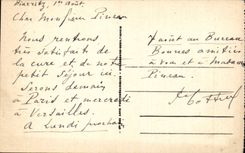 Biarritz, 1er août
Cher Monsieur Pineau
Nous rentrons
très satisfait de
la cure et de notre
petit séjour ici.
Serons demain
à Paris et mercredi
à Versailles.
A Lundi prochain
7 août au Bureau
Bonnes amitiés
à vous et à Madame
Pineau.